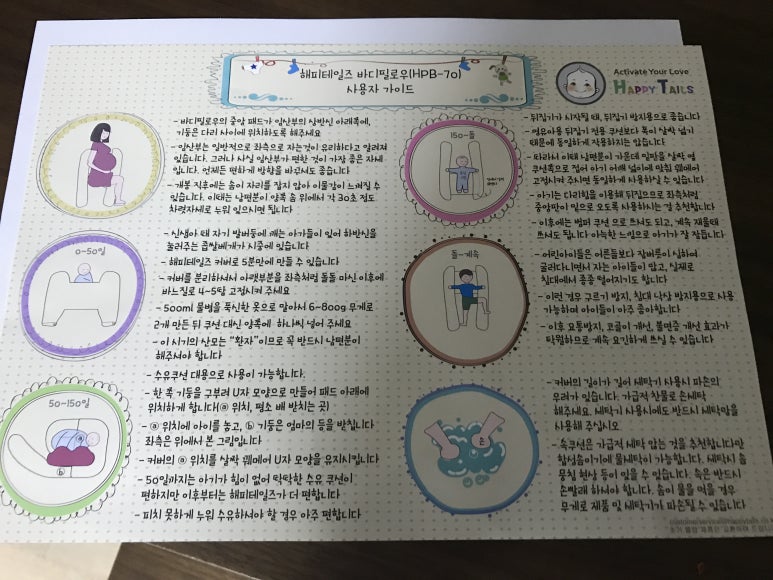 해피테일즈 바디필로우(HPB-70)
사용자 가이드
Activate Your Love
HAPPY TAILS
- 바디필로우의 중앙 패드가 임산부의 상반신 아래쪽에,
기둥은 다리 사이에 위치하도록 해주세요
- 임산부는 일반적으로 좌측으로 자는것이 유리하다고 알려져
있습니다. 그러나 사실 임산부가 편한 것이 가장 좋은 자세
입니다. 언제든 편하게 방향을 바꾸셔도 좋습니다
- 개봉 직후에는 솜이 자리를 잡지 않아 이물감이 느껴질 수
있습니다. 이때는 남편분이 양쪽 솜 위에서 각 30초 정도
차렷자세로 누워 있으면 됩니다
0~50일
- 신생아 때 자기 발버둥에 깨는 아가들이 있어 하반신을
눌러주는 좁쌀베개가 시중에 있습니다
- 해피테일즈 커버로 5분만에 만들 수 있습니다
- 커버를 분리하셔서 아랫부분을 좌측처럼 돌돌 마신 이후에
바느질로 4~5땀 고정시켜 주세요
- 500ml 물병을 푹신한 옷으로 말아서 6~800g 무게로
2개 만든 뒤 쿠션 대신 양쪽에 하나씩 넣어 주세요
- 이 시기의 산모는 "환자"이므로 꼭 반드시 남편분이
해주셔야 합니다
50~150일
ⓐ
ⓑ
- 수유쿠션 대용으로 사용이 가능합니다.
- 한 쪽 기둥을 구부려 U자 모양으로 만들어 패드 아래에
위치하게 합니다(ⓐ 위치, 평소 배 받치는 곳)
- ⓐ 위치에 아이를 놓고, ⓑ 기둥은 엄마의 등을 받칩니다
좌측은 위에서 본 그림입니다
- 커버의 ⓐ 위치를 살짝 꿰메어 U자 모양을 유지시킵니다
- 50일까지는 아기가 힘이 없어 탁탁한 수유 쿠션이
편하지만 이후부터는 해피테일즈가 더 편합니다
- 피치 못하게 누워 수유하셔야 할 경우 아주 편합니다
150~돌
- 뒤집기가 시작될 때, 뒤집기 방지용으로 좋습니다
- 영유아용 뒤집기 전용 쿠션보다 폭이 살짝 넓기
때문에 동일하게 작용하지는 않습니다
- 따라서 이때 남편분이 가운데 일판을 살짝 옆
쿠션쪽으로 접어 아기 어깨 넓이에 맞춰 꿰메어
고정시켜 주시면 동일하게 사용하실 수 있습니다
- 아기는 다리힘을 이용해 뒤집으므로 좌측처럼
중앙판이 밑으로 오도록 사용하시는 걸 추천합니다
- 이후에는 범퍼 쿠션 으로 쓰셔도 되고, 계속 재울때
쓰셔도 됩니다 아늑한 느낌으로 아가가 잘 잡니다
돌~계속
- 어린아이들은 어른들보다 잠버릇이 심하여
굴러다니면서 자는 아이들이 많고, 실제로
침대에서 종종 떨어지기도 합니다
- 이런 경우 구르기 방지, 침대 낙상 방지용으로 사용
가능하며 아이들이 아주 좋아합니다
- 이후 요통방지, 코골이 개선, 불면증 개선 효과가
탁월하므로 계속 요긴하게 쓰실 수 있습니다
손
- 커버의 길이가 길어 세탁기 사용시 파손의
우려가 있습니다. 가급적 찬물로 손세탁
해주세요. 세탁기 사용시에도 반드시 세탁망을
사용해 주십시오
- 속쿠션은 가급적 세탁 않는 것을 추천합니다만
합성솜이기에 물세탁이 가능합니다. 세탁시 솜
뭉침 현상 등이 있을 수 있습니다. 속은 반드시
손빨래 하셔야 합니다. 솜이 물을 먹을 경우
무게로 제품 및 세탁기가 파손될 수 있습니다